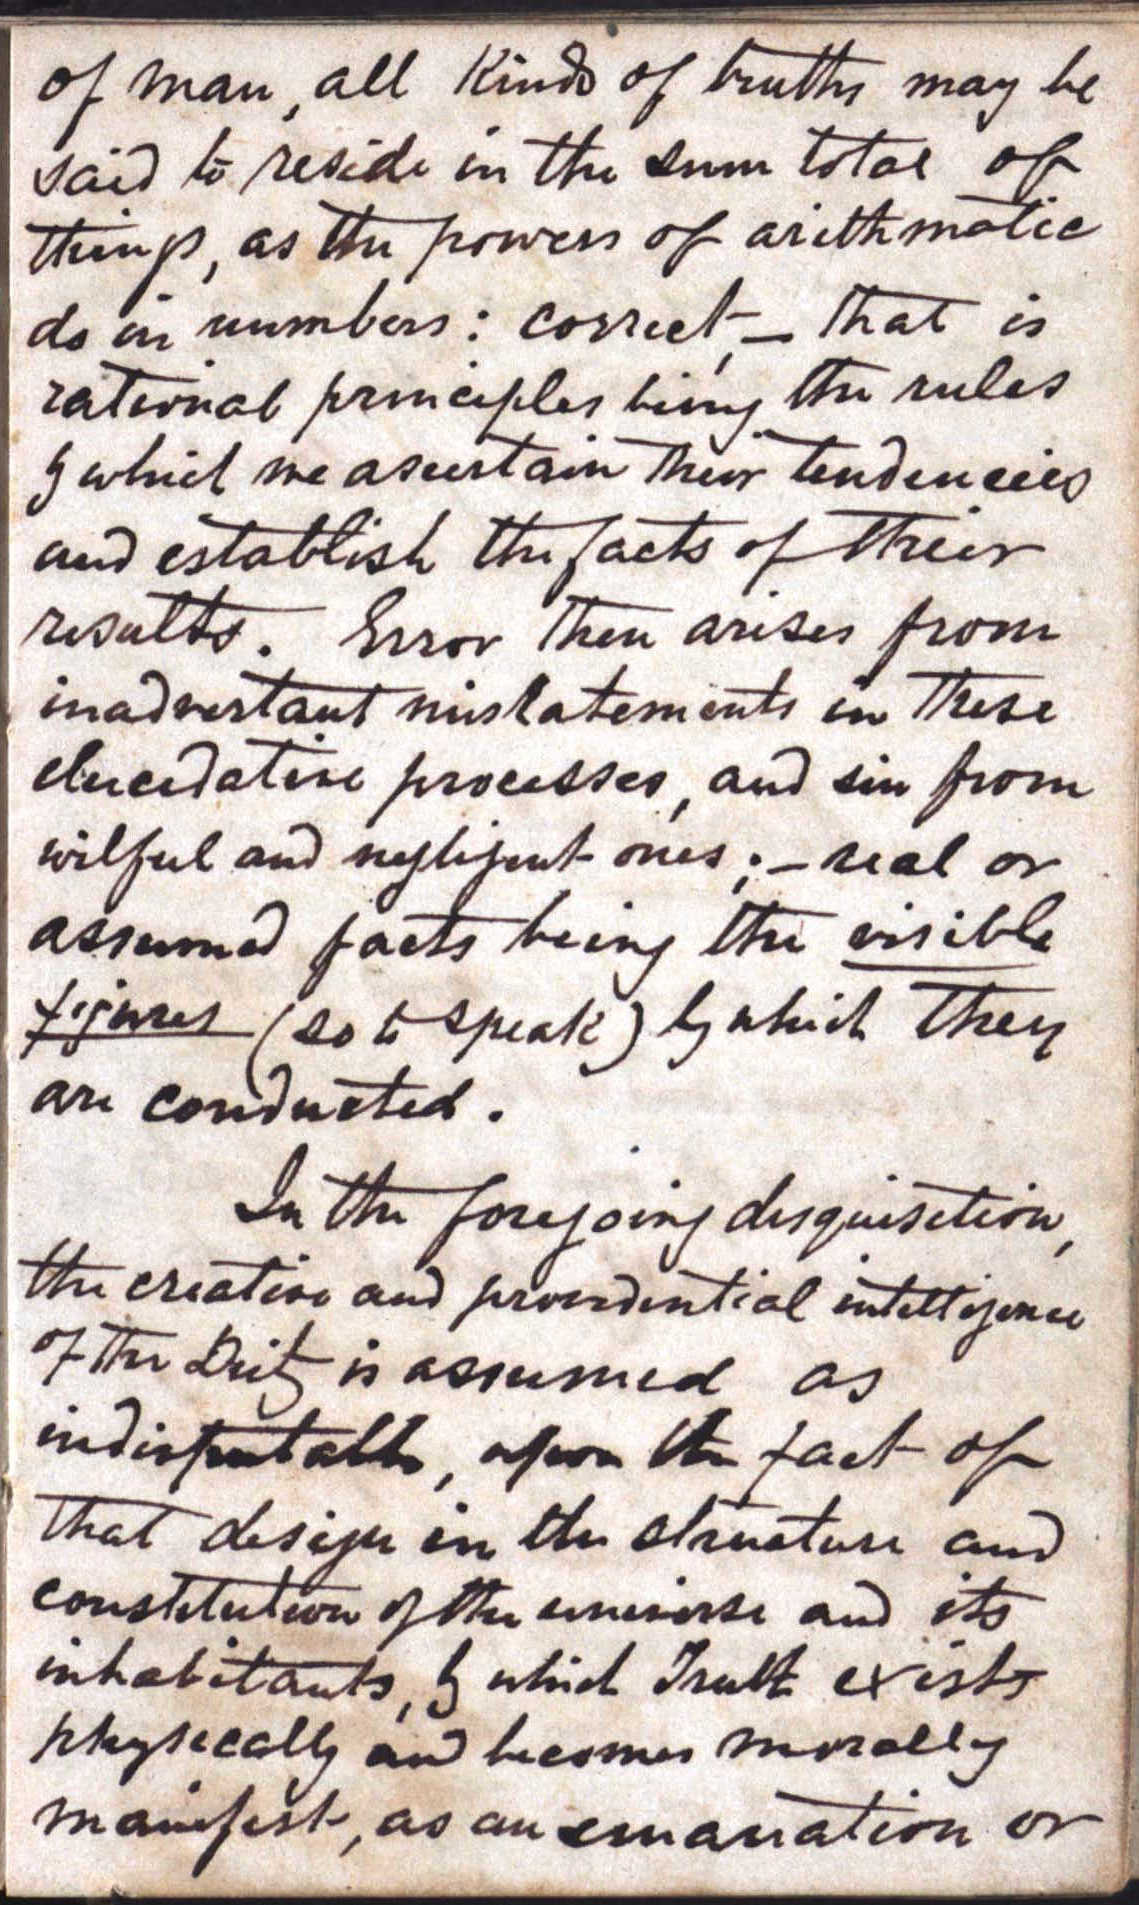 of man, all kinds of truths may be
said to reside in the sum total of
things, as the powers of arithmatic
do in numbers: correct, – that is
rational principles being the rules
by which we ascertain their tendencies
and establish the facts of their
results. Error then arises from
inadvertant mistatements in these
elucedative processes, and sin from
wilful and negligent ones; – real or
assumed facts being the visible
figures (so to speak) by which they
are conducted.
In the foregoing disquisition,
the creative and providential intelligence
of the Deity is assumed as
indisputable, upon the fact of
that design in the structure and
constitution of the universe and its
inhabitants, by which Truth exists
physically and becomes morally
manifest, as an emanation or